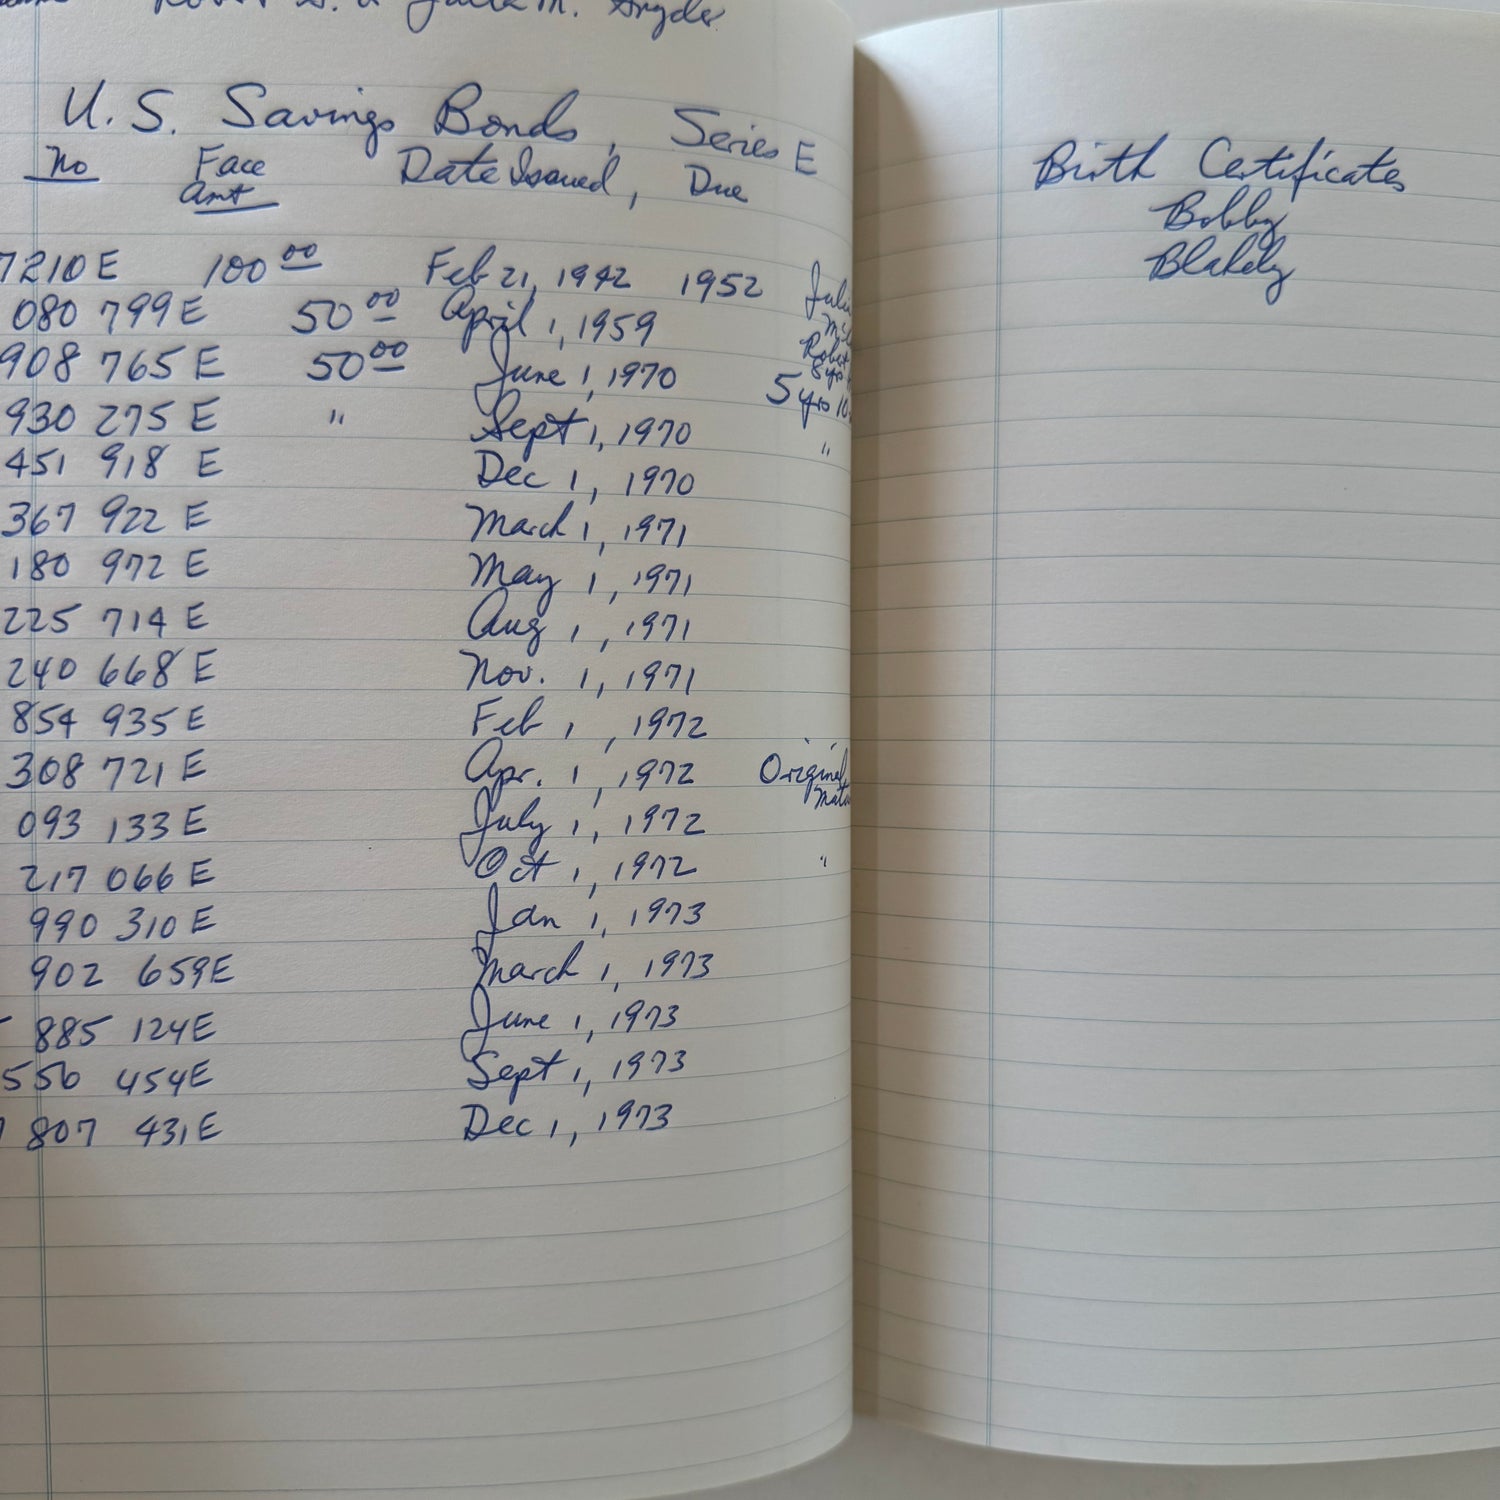 U.S. Savings Bonds, Series E
No Face Amt Date Issued, Due
7210 E 100 00 Feb 21, 1942 1952
080 799 E 50 00 April 1, 1959
908 765 E 50 00 June 1, 1970 5 yrs 10
930 275 E " Sept 1, 1970 "
451 918 E Dec 1, 1970
367 922 E March 1, 1971
180 972 E May 1, 1971
225 714 E Aug 1, 1971
240 668 E Nov. 1, 1971
854 935 E Feb 1, 1972
308 721 E Apr. 1, 1972 Original
093 133 E July 1, 1972
217 066 E Oct 1, 1972 "
990 310 E Jan 1, 1973
902 659 E March 1, 1973
885 124 E June 1, 1973
556 454 E Sept 1, 1973
807 431 E Dec 1, 1973
Birth Certificates
Bobby
Blakely